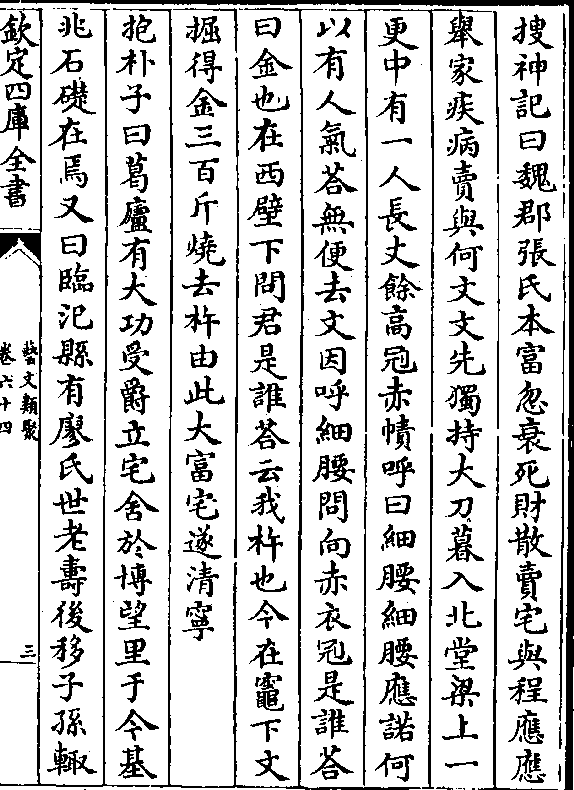 搜神記曰魏郡張氏本富忽衰死財散賣宅與程應應
舉家疾病賣與何文文先獨持大刀暮入北堂梁上一
更中有一人長丈餘高冠赤幘呼曰細腰細腰應諾何
以有人氣荅無便去文因呼細腰問向赤衣冠是誰荅
曰金也在西壁下問君是誰荅云我杵也今在竈下文
掘得金三百斤燒去杵由此大富宅遂清寧
抱朴子曰葛廬有大功受爵立宅舍於博望里于今基
兆石礎在焉又曰臨汜縣有廖氏世老壽後移子孫輙
欽定四庫全書
藝文類聚
卷六十四
三